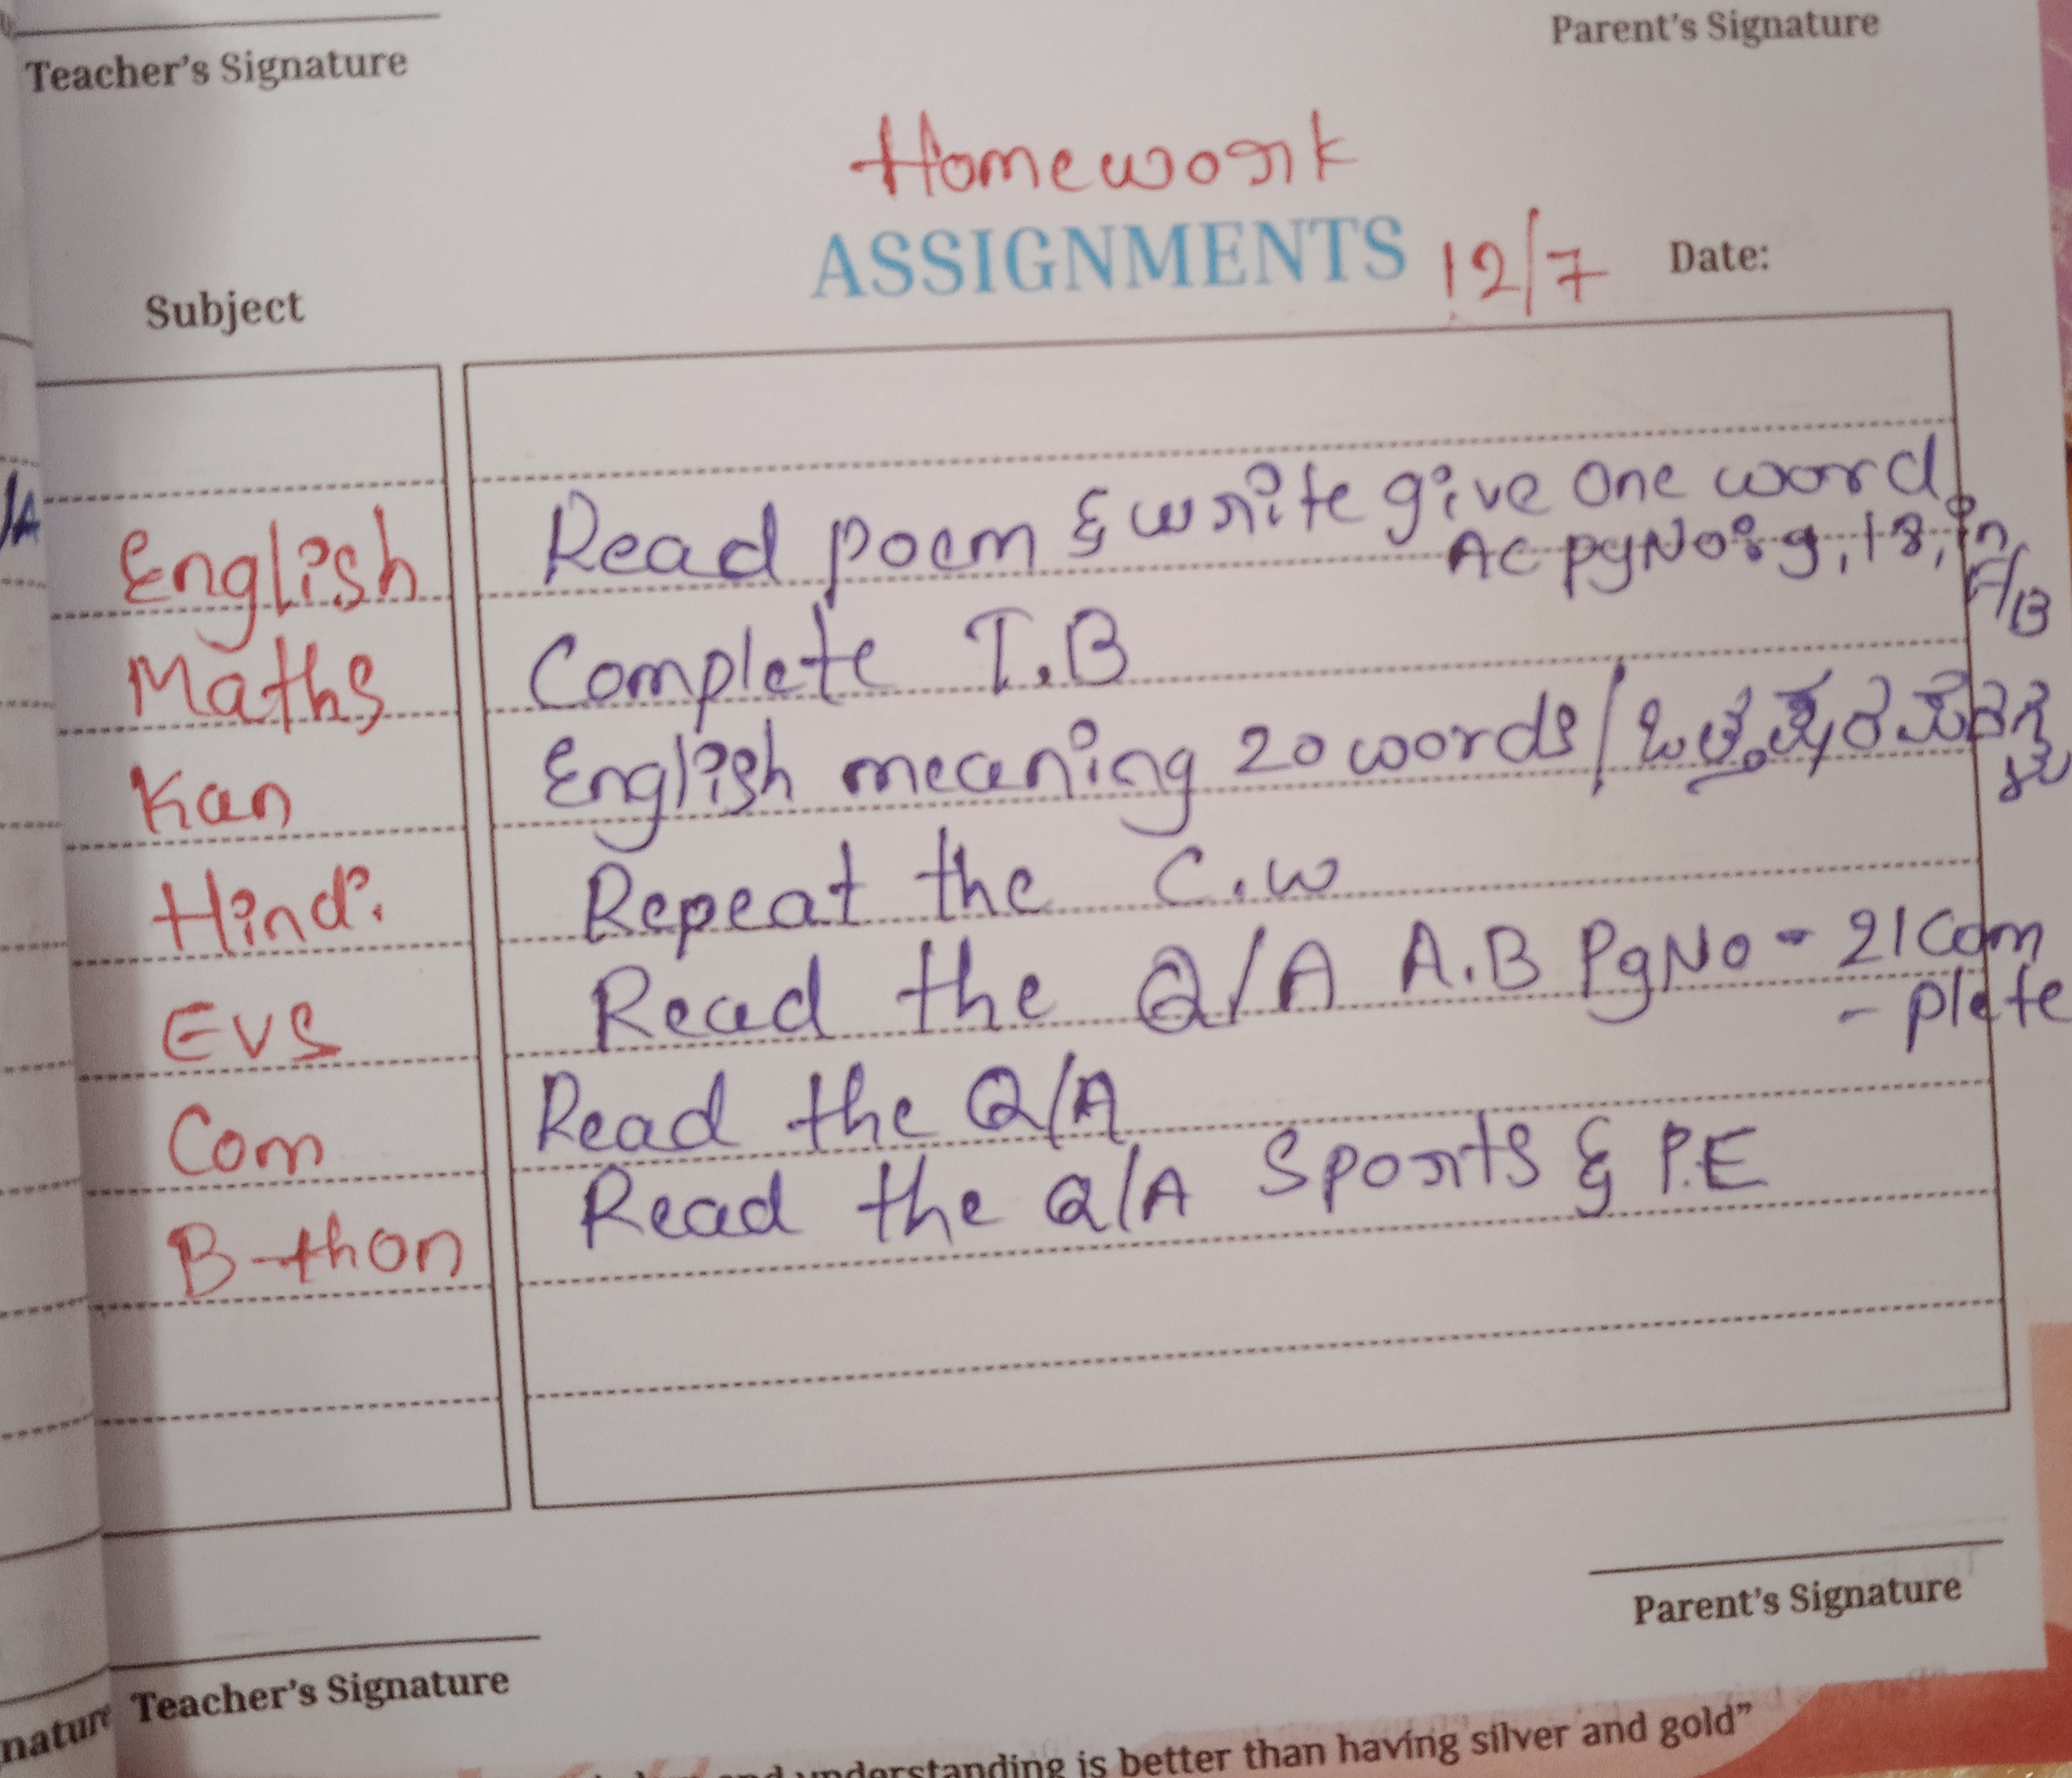 Teacher's Signature
Parent's Signature
Homework
ASSIGNMENTS 12/7 Date:
Subject
English Read poem & write give one word
AC pgNo: 9, 18, in
F/B
Maths Complete T.B
Kan English meaning 20 words /
Hindi Repeat the C.W
EVS Read the Q/A A.B PgNo - 21 Com
- plete
Com Read the Q/A
B-thon Read the Q/A Sports & P.E
Parent's Signature
nature Teacher's Signature
understanding is better than having silver and gold"